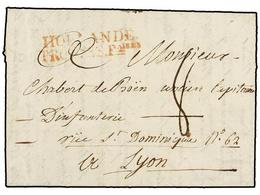 HOLLANDE
Monsieur
Chabert de Boën ancien Capitaine
D'infanterie
8
rüe St Dominique No 62
A Lyon